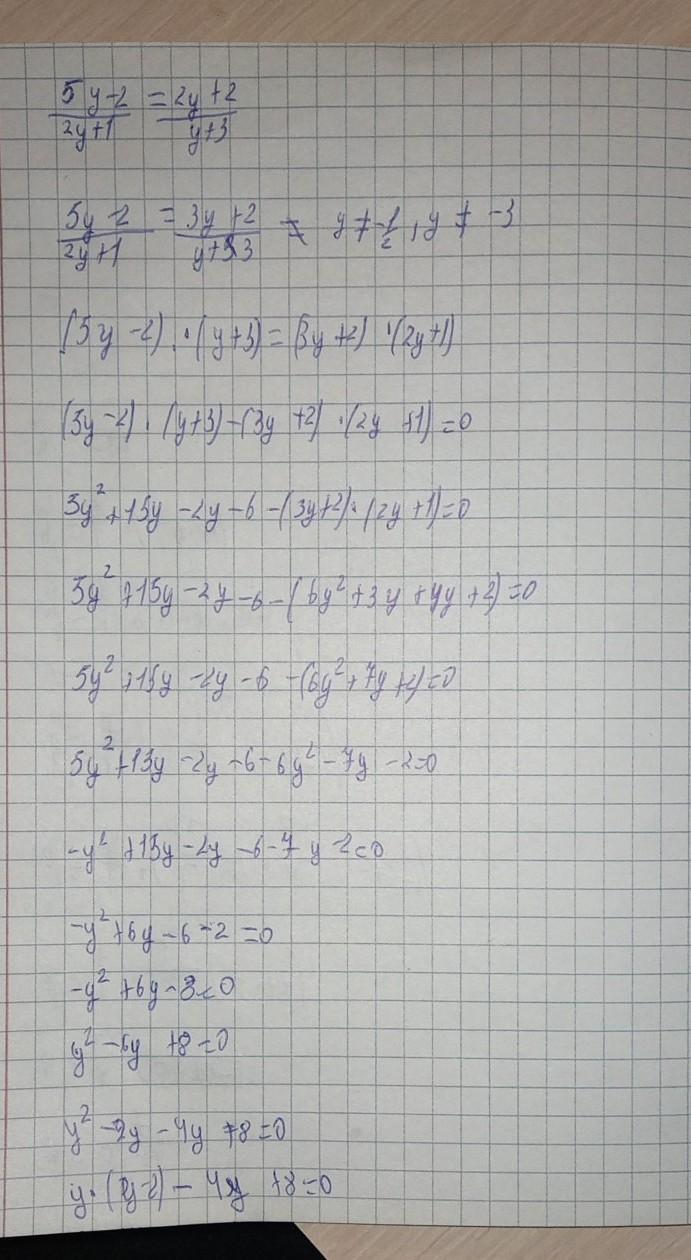 (5y-2)/(2y+1) = (2y+2)/(y+3)
(5y-2)/(2y+1) = (3y+2)/(y+3) y ≠ -1/2, y ≠ -3
(5y-2)·(y+3)=(3y+2)·(2y+1)
(5y-2)·(y+3)-(3y+2)·(2y+1)=0
5y²+15y-2y-6-(3y+2)·(2y+1)=0
5y²+15y-2y-6-(6y²+3y+4y+2)=0
5y²+15y-2y-6-(6y²+7y+2)=0
5y²+15y-2y-6-6y²-7y-2=0
-y²+15y-2y-6-7y-2=0
-y²+6y-6-2=0
-y²+6y-8=0
y²-6y+8=0
y²-2y-4y+8=0
y·(y-2)-4y+8=0